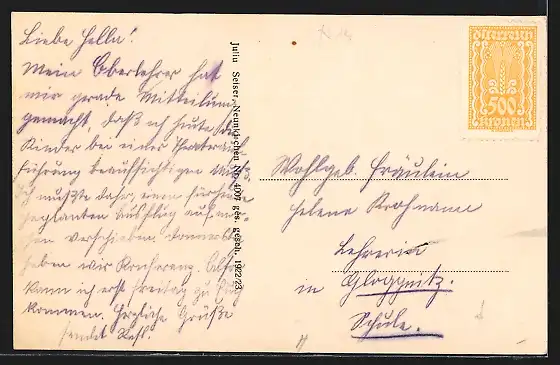 Liebe Hella!
Mein Oberlehrer hat
mir grade Mitteilung
gemacht, daß ich heute die
Kinder bei einer Theaterauf-
führung beaufsichtigen muß.
Ich mußte daher, vom für heute
geplanten Ausflug auf mor-
gen verschieben. Donnerst.
haben wir Konferenz. Also
kann ich erst Freitag zu Euch
kommen. Herzliche Grüße
sendet
Julia Seiser, Neunkirchen ges. gesch. 1922/23
österreich
500
kronen
Wohlgeb. Fräulein
Helene Krohmann
Lehrerin
in Gloggnitz.
Schule.